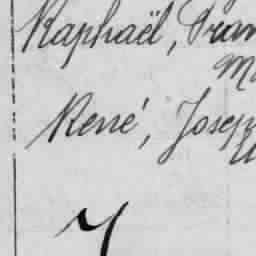 Raphaël, Fran
René, Josep